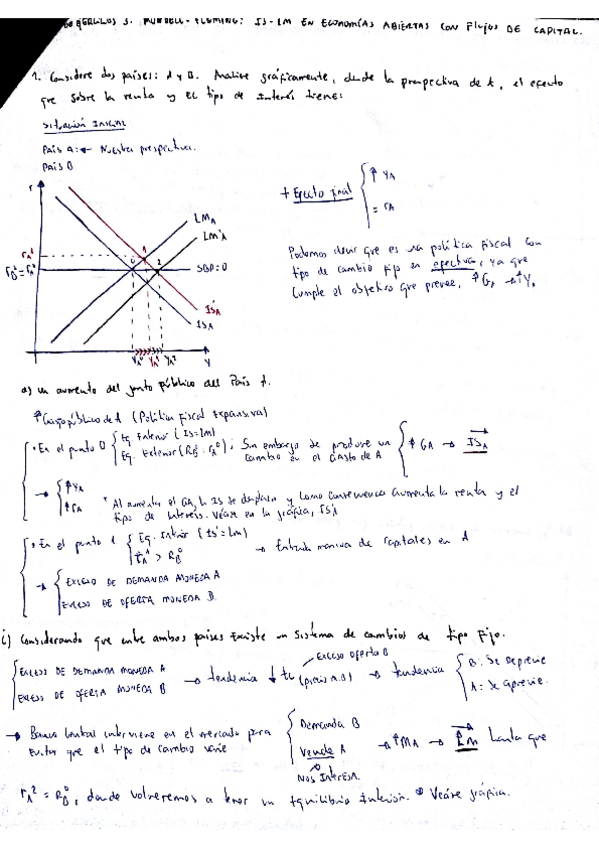 3. MUNDELL-FLEMING: IS-LM EN ECONOMÍAS ABIERTAS CON FLUJOS DE CAPITAL.
1. Considere dos países: A y B. Analice gráficamente, desde la perspectiva de A, el efecto
que sobre la renta y el tipo de interés tiene:
SITUACIÓN INICIAL
PAÍS A: ← Nuestra perspectiva.
PAÍS B
r
LM_A
LM'_A
r_A^1
r_B^0 = r_A^0
0
1
2
SBP=0
IS'_A
IS_A
Y_A^0 Y_A^1 Y_A^2 Y
+ Efecto final
↑ Y_A
= r_A
Podemos decir que es una política fiscal con
tipo de cambio fijo es efectiva, ya que
cumple el objetivo que prevee, ↑G_A → ↑Y_A
a) un aumento del gasto público del País A.
↑ Gasto público de A (Política Fiscal Expansiva)
• En el punto 0 { Eq. Interior (IS=LM) Eq. Exterior (R_B^0 = r_A^0) ; Sin embargo se produce un cambio en el Gasto de A { ↑ G_A → IS_A
→ { ↑ Y_A ↑ r_A
* Al aumentar el G_A, la IS se desplaza y como consecuencia aumenta la renta y el
tipo de interés. Véase en la gráfica, IS'_A
• En el punto 1 { Eq. Interior (IS'=LM) r_A^1 > R_B^0 → Entrada masiva de capitales en A
→ { EXCESO DE DEMANDA MONEDA A
EXCESO DE OFERTA MONEDA B
i) Considerando que entre ambos países existe un sistema de cambios de tipo Fijo.
{ EXCESO DE DEMANDA MONEDA A EXCESO DE OFERTA MONEDA B → tendencia ↓ tc → tendencia { B: Se deprecie A: Se aprecie.
Exceso oferta B
→ Banco Central interviene en el mercado para
evitar que el tipo de cambio varíe
{ Demanda B Vende A → ↑M_A → LM hasta que
NOS INTERESA.
r_A^2 = R_B^0, donde volveremos a tener un Equilibrio Interior. * Véase gráfica.